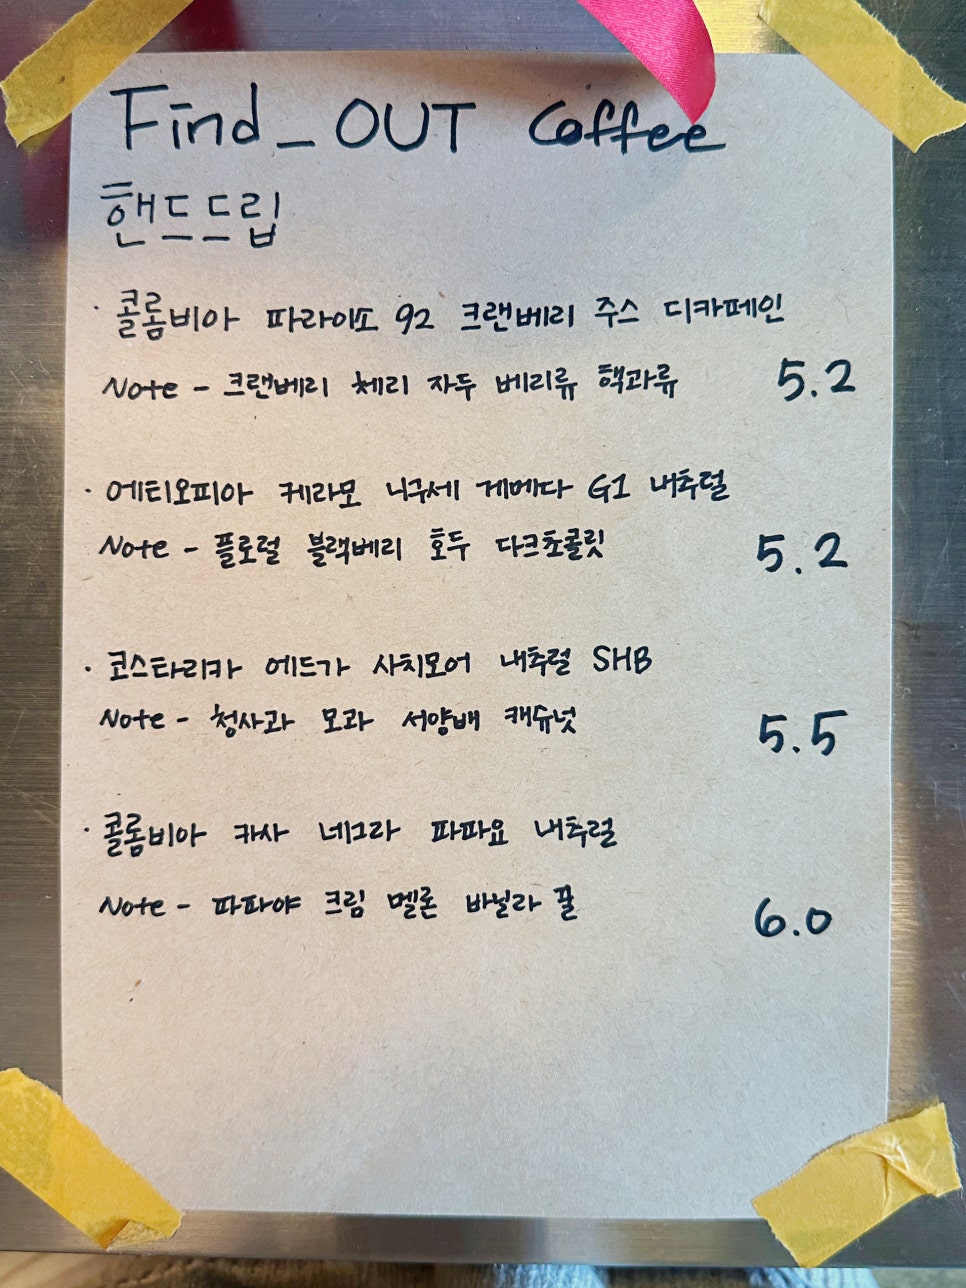 Find_OUT Coffee
핸드드립
· 콜롬비아 파라이소 92 크랜베리 주스 디카페인
Note - 크랜베리 체리 자두 베리류 핵과류 5.2
· 에티오피아 케라모 니구세 게메다 G1 내추럴
Note - 플로럴 블랙베리 호두 다크초콜릿 5.2
· 코스타리카 에드가 사치모어 내추럴 SHB
Note - 청사과 모과 서양배 캐슈넛 5.5
· 콜롬비아 카사 네그라 파파요 내추럴
Note - 파파야 크림 멜론 바닐라 꿀 6.0